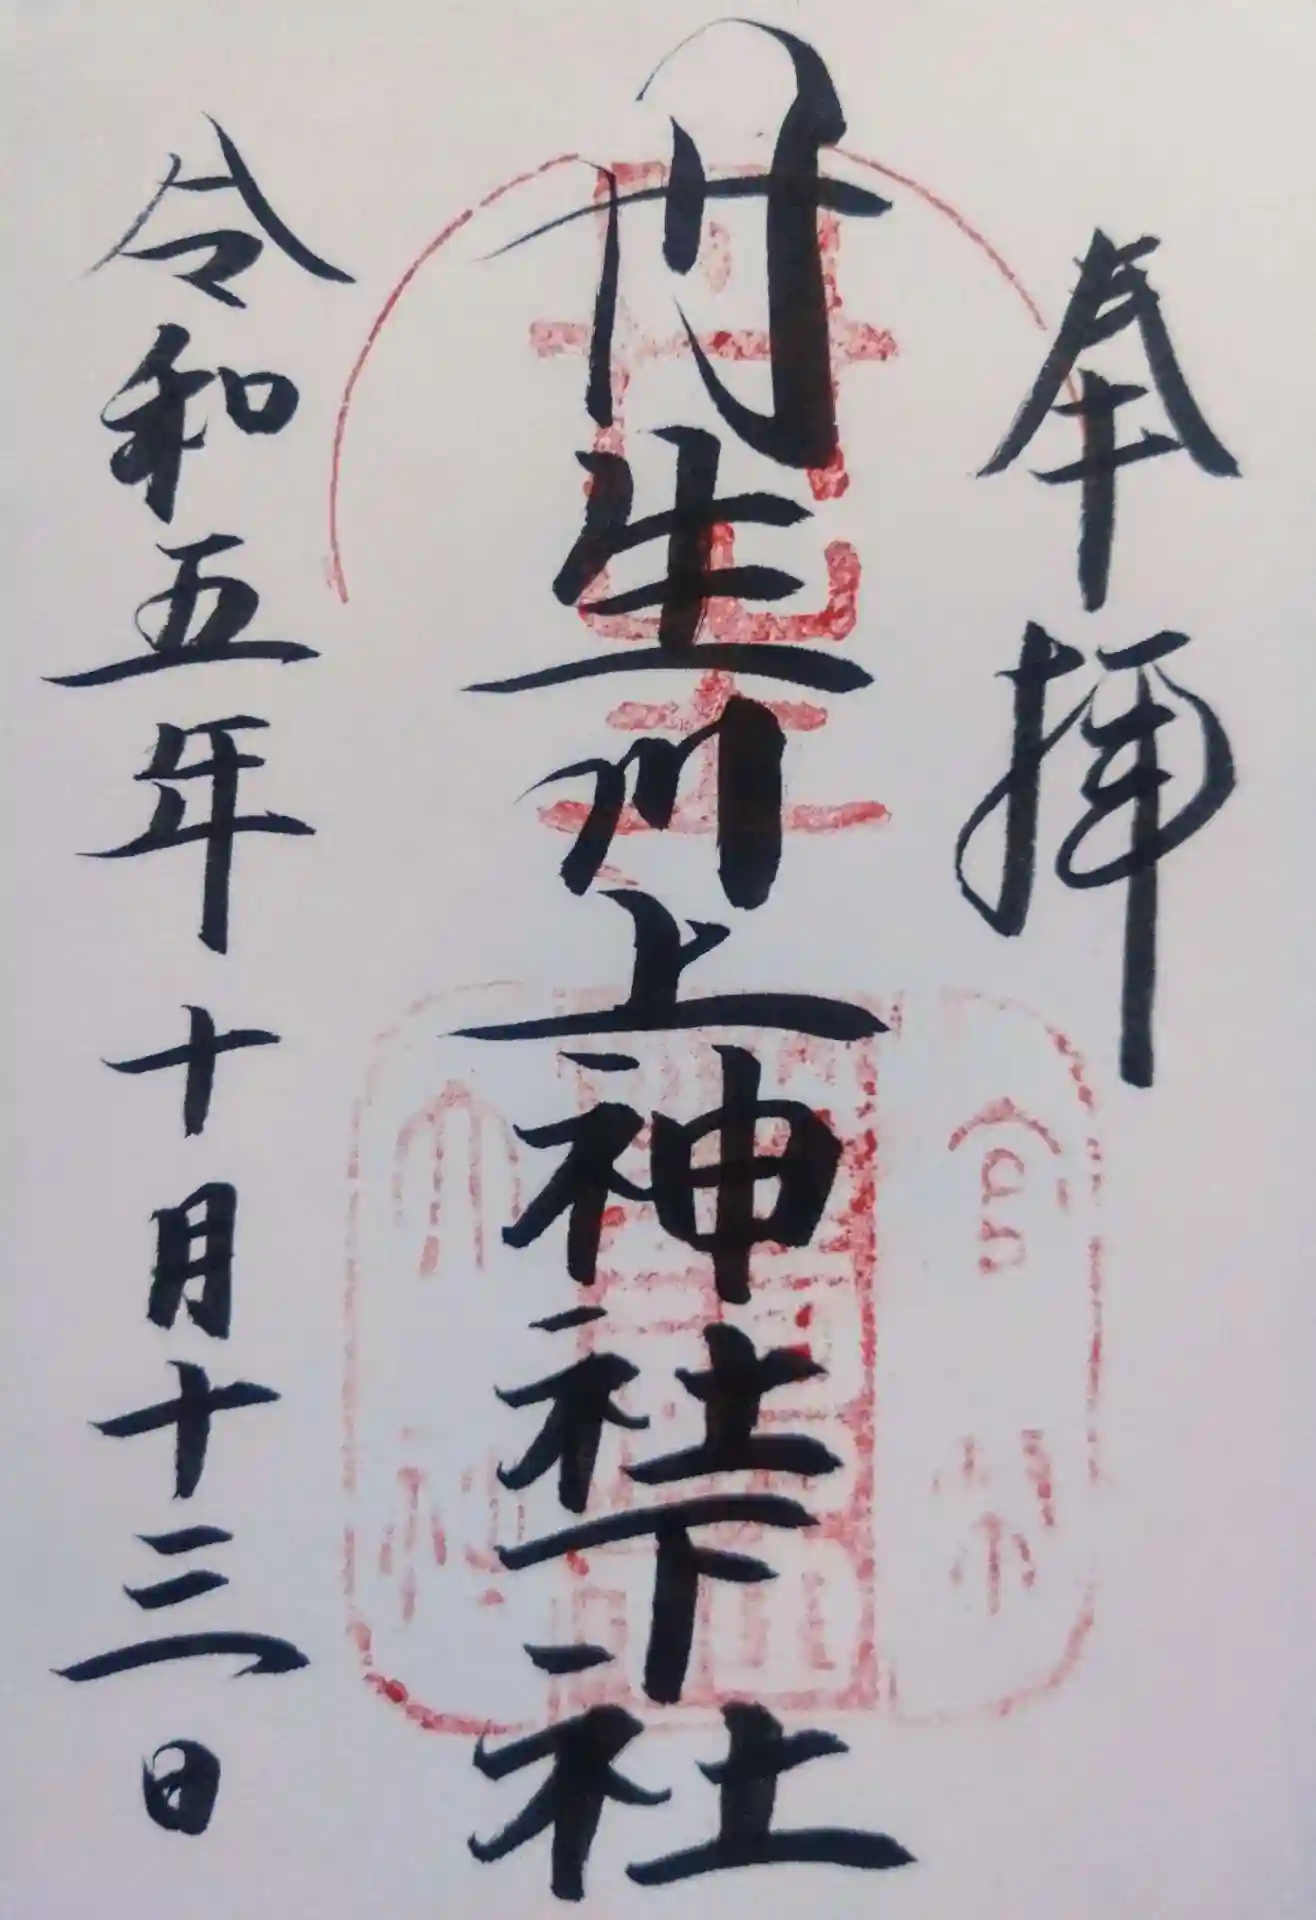 奉拝
丹生川上神社下社
令和五年十月十三日